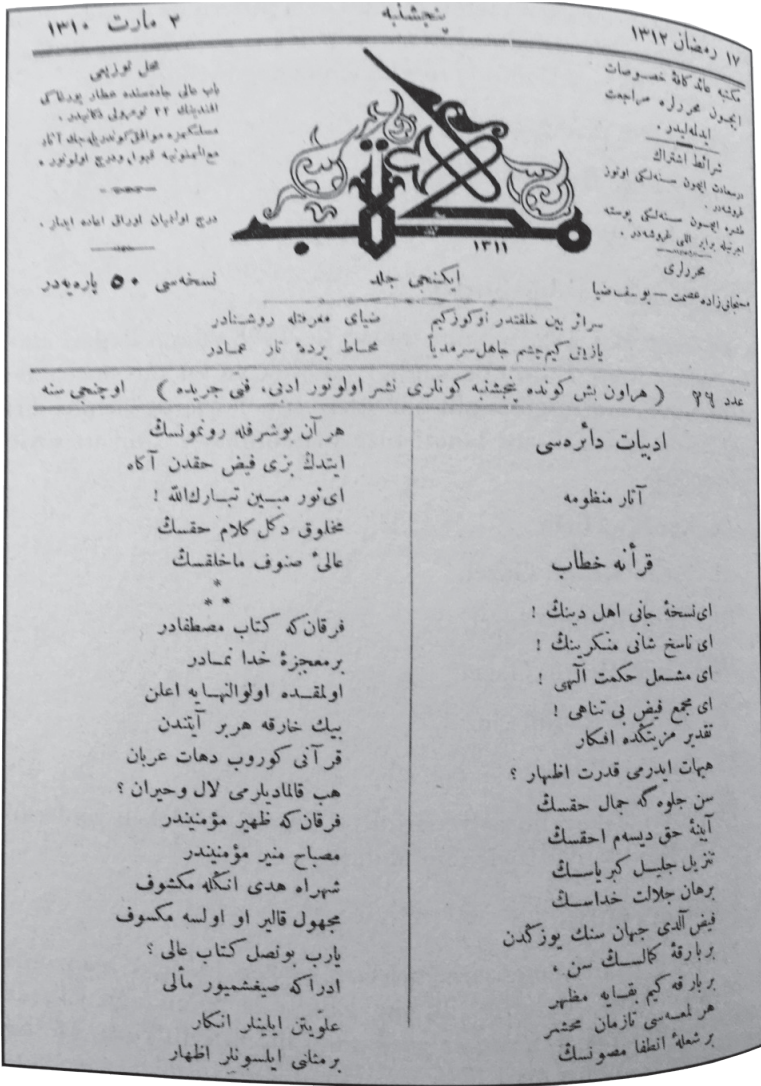 ١٧ رمضان ١٣١٢
پنجشنبه
٢ مارت ١٣١٠
مكتبه عائد كافهٔ خصوصات
ايچون محررلره مراجعت
ايدلمليدر .
شرائط اشتراك
درسعادت ايچون سنه‌لكى اوتوز
غروشدر .
طشره ايچون سنه‌لكى پوسته
اجرتيله برابر اللى غروشدر .
محررلرى
عصمت — يوسف ضيا
مكتب
١٣١١
ايكنجى جلد
محل توزيعى
باب عالى جاده‌سنده عطار
افندينك ٢٢ نومرولى دكانيدر .
مسلكمزه موافق كوندريله‌جك آثار
مع‌الممنونيه قبول ودرج اولونور .
درج اولنميان اوراق اعاده ايدلمز .
نسخه‌سى ٥٠ پاره‌يه‌در
سرائر بين خلقتدر اوكوزكيم ضياى معرفتله روشنادر
يازيق كيم چشم جاهل سرمدياً محاط پردهٔ تار عمادر
عدد ٢٦ ( هراون بش كونده پنجشنبه كونلرى نشر اولونور ادبى، فنى جريده ) اوچنجى سنه
ادبيات دائره‌سى
آثار منظومه
قرأنه خطاب
اى نسخهٔ جانى اهل دينك !
اى ناسخ شانى منكرينك !
اى مشعل حكمت آلهى !
اى مجمع فيض بى تناهى !
تقدير مزيتكده افكار
هيهات ايدرمى قدرت اظهار ؟
سن جلوه كه جمال حقسك
آيينهٔ حق ديسه‌م احقسك
تنزيل جليل كبرياسك
برهان جلالت خداسك
فيض آلدى جهان سنك يوزكدن
بربارقهٔ كمالسك سن ،
بربارقه كيم بقايه مظهر
هر لمعه‌سى تازمان محشر
بر شعلهٔ انطفا مصونسك
هر آن بوشرفله رونمونسك
ايتدك بزى فيض حقدن آكاه
اى نور مبين تبارك‌الله !
مخلوق دكل كلام حقسك
عالئ صنوف ماخلقسك
* * *
فرقان كه كتاب مصطفادر
برمعجزهٔ خدا نمادر
اولمقده اولوالنهايه اعلن
بيك خارقه هربر آيتندن
قرآنى كوروب دهات عربان
هب قالماديلرمى لال وحيران ؟
فرقان كه ظهير مؤمنيندر
مصباح منير مؤمنيندر
شهراه هدى انكله مكشوف
مجهول قالير او اولسه مكسوف
يارب بونصل كتاب عالى ؟
ادراكه صيغشميور مألى
علويتن ايلينلر انكار
برمثانى ايلسونلر اظهار